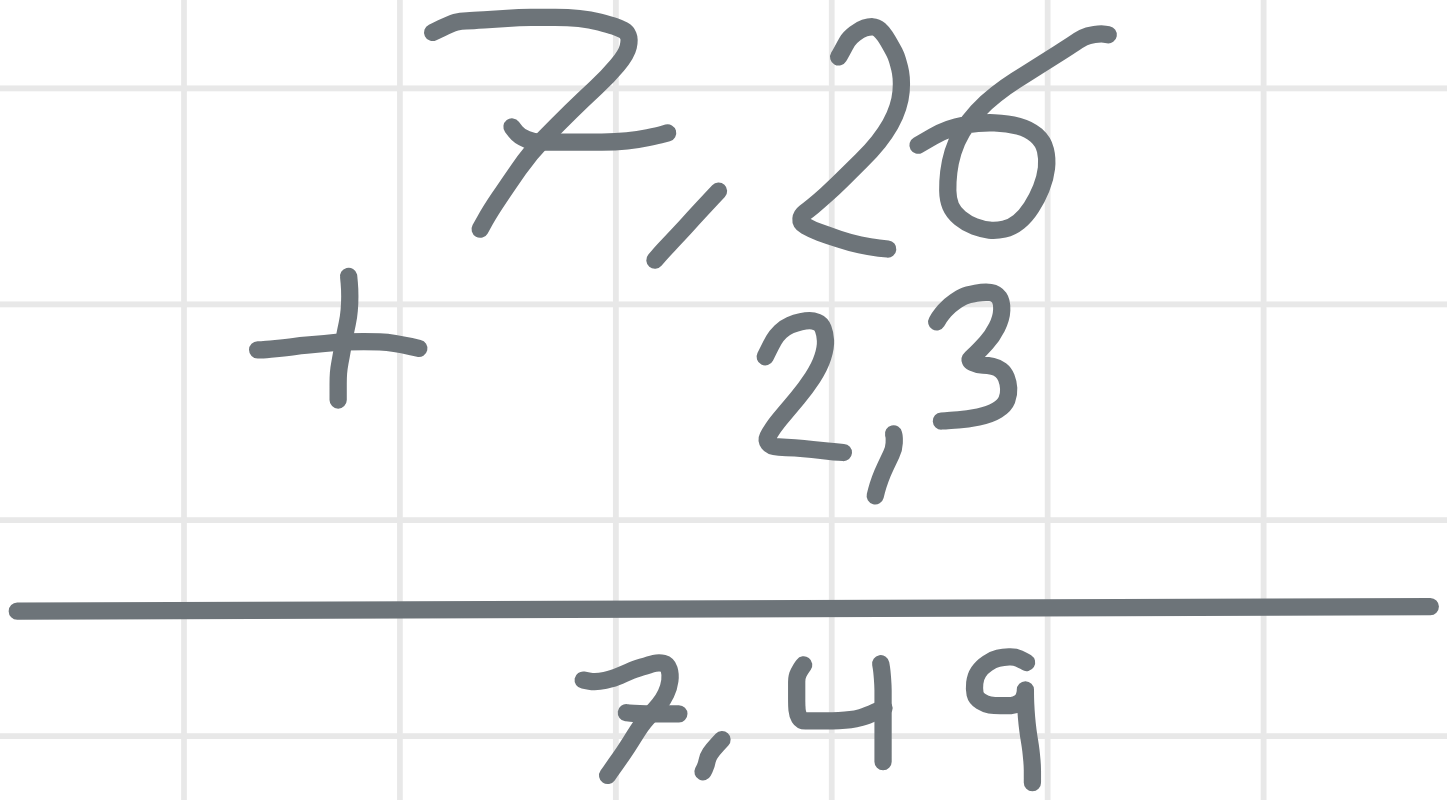 7,26
+ 2,3
7,49